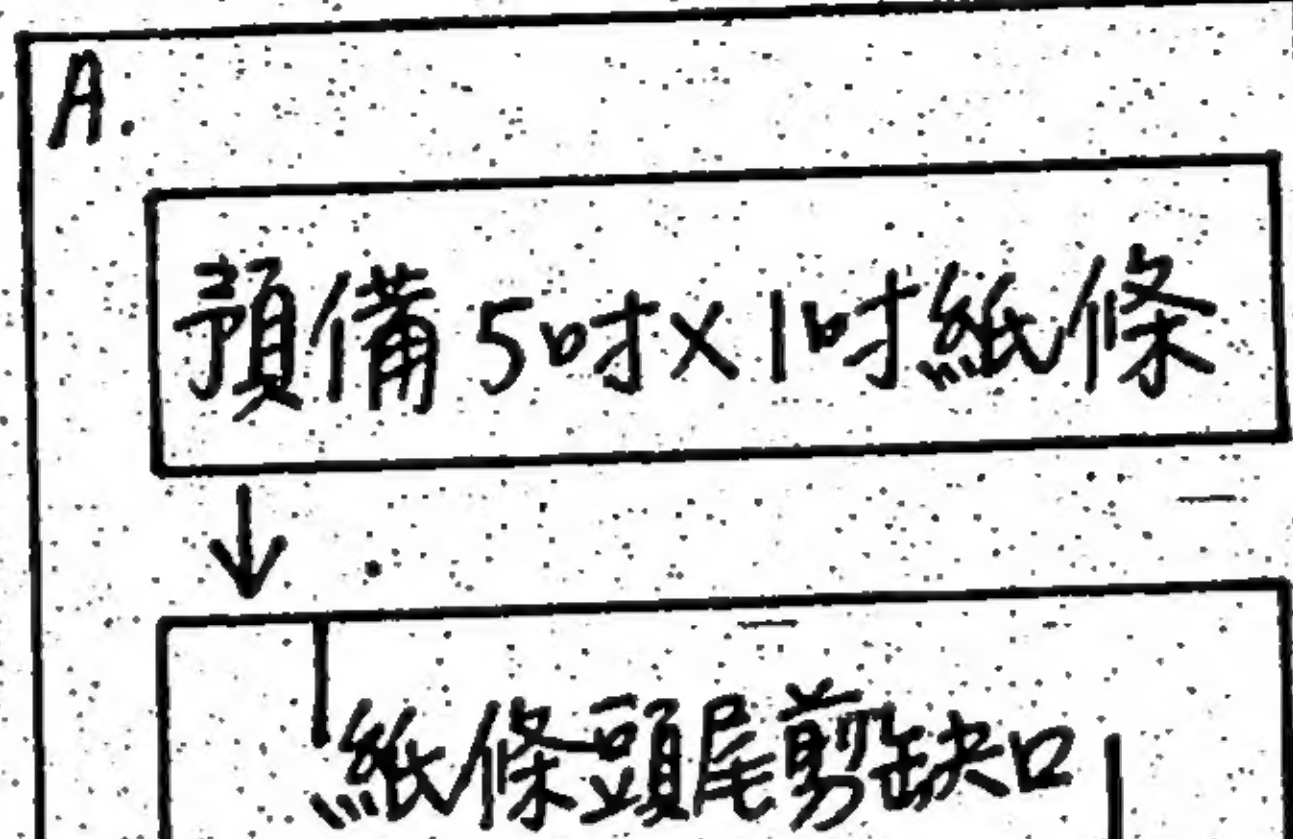 A.
預備5吋×1吋紙條
紙條頭尾剪缺口